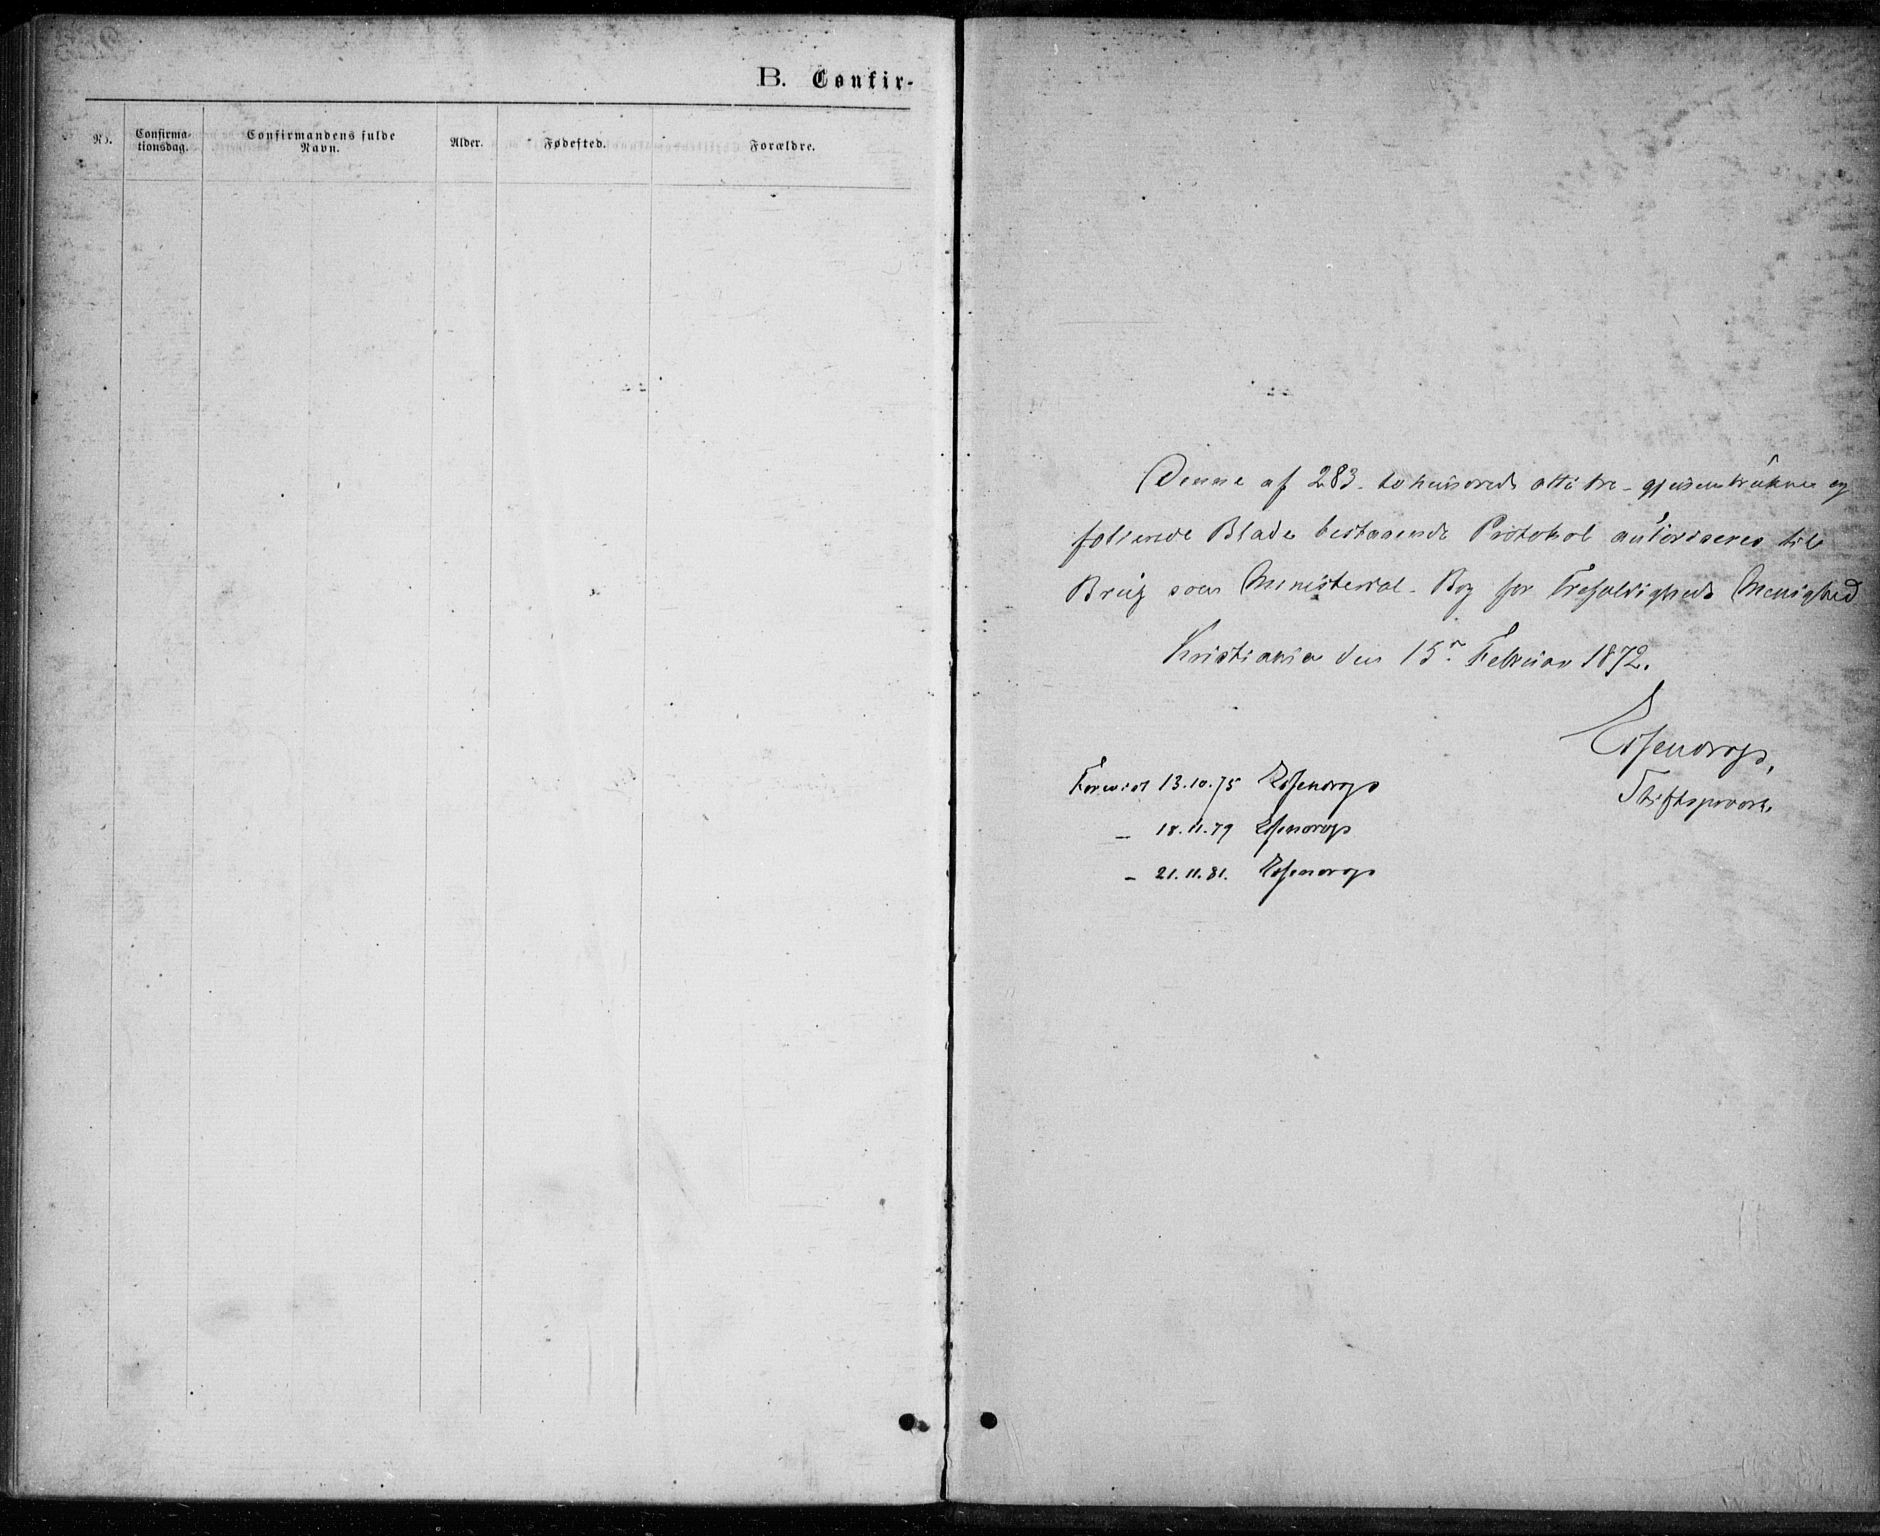 B. Confir-
No.
Confirma-
tionsdag.
Confirmandens fulde
Navn.
Alder.
Fødested.
Forældre.
Denne af 283 - tohundrede otti tre - gjennemtrukne og
folierede Blade bestaaende Protokol autoriseres til
Brug som Ministerial-Bog for Trefoldigheds Menighed
Kristiania den 15de Februar 1872.
Stiftsprovst.
Forevist 13.10.75
— 18.11.79
— 21.11.81.